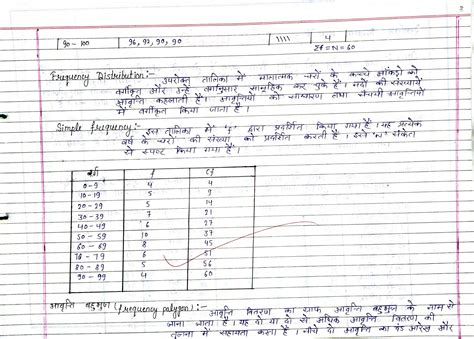 90 - 100 96, 92, 90, 90 |||| 4
Σf = N = 60
Frequency Distribution:- उपरोक्त तालिका में मात्रात्मक चरों के कच्चे आंकड़ो को
वर्गीकृत और उन्हें वर्गानुसार सामूहिक कर चुके हैं। पदों की संख्यायें
आवृत्ति कहलाती हैं। आवृत्तियों को साधारण तथा संचयी आवृत्तियों
में वर्गीकृत किया जाता है।
Simple frequency:- इस तालिका में 'f' द्वारा प्रदर्शित किया गया है। यह प्रत्येक
वर्ग के चरों की संख्या को प्रदर्शित करती है। इसे 'N' संकेत
से स्पष्ट किया गया है।
वर्ग f Cf
0-9 4 4
10-19 5 9
20-29 5 14
30-39 7 21
40-49 6 27
50-59 10 37
60-69 8 45
70-79 6 51
80-89 5 56
90-99 4 60
आवृत्ति बहुभुज (frequency polygon):- आवृत्ति वितरण का ग्राफ आवृत्ति बहुभुज के नाम से
जाना जाता है। यह दो या दो से अधिक आवृत्ति वितरण की
तुलना में सहायता करता है। नीचे दो आवृत्ति का दंड आरेख और